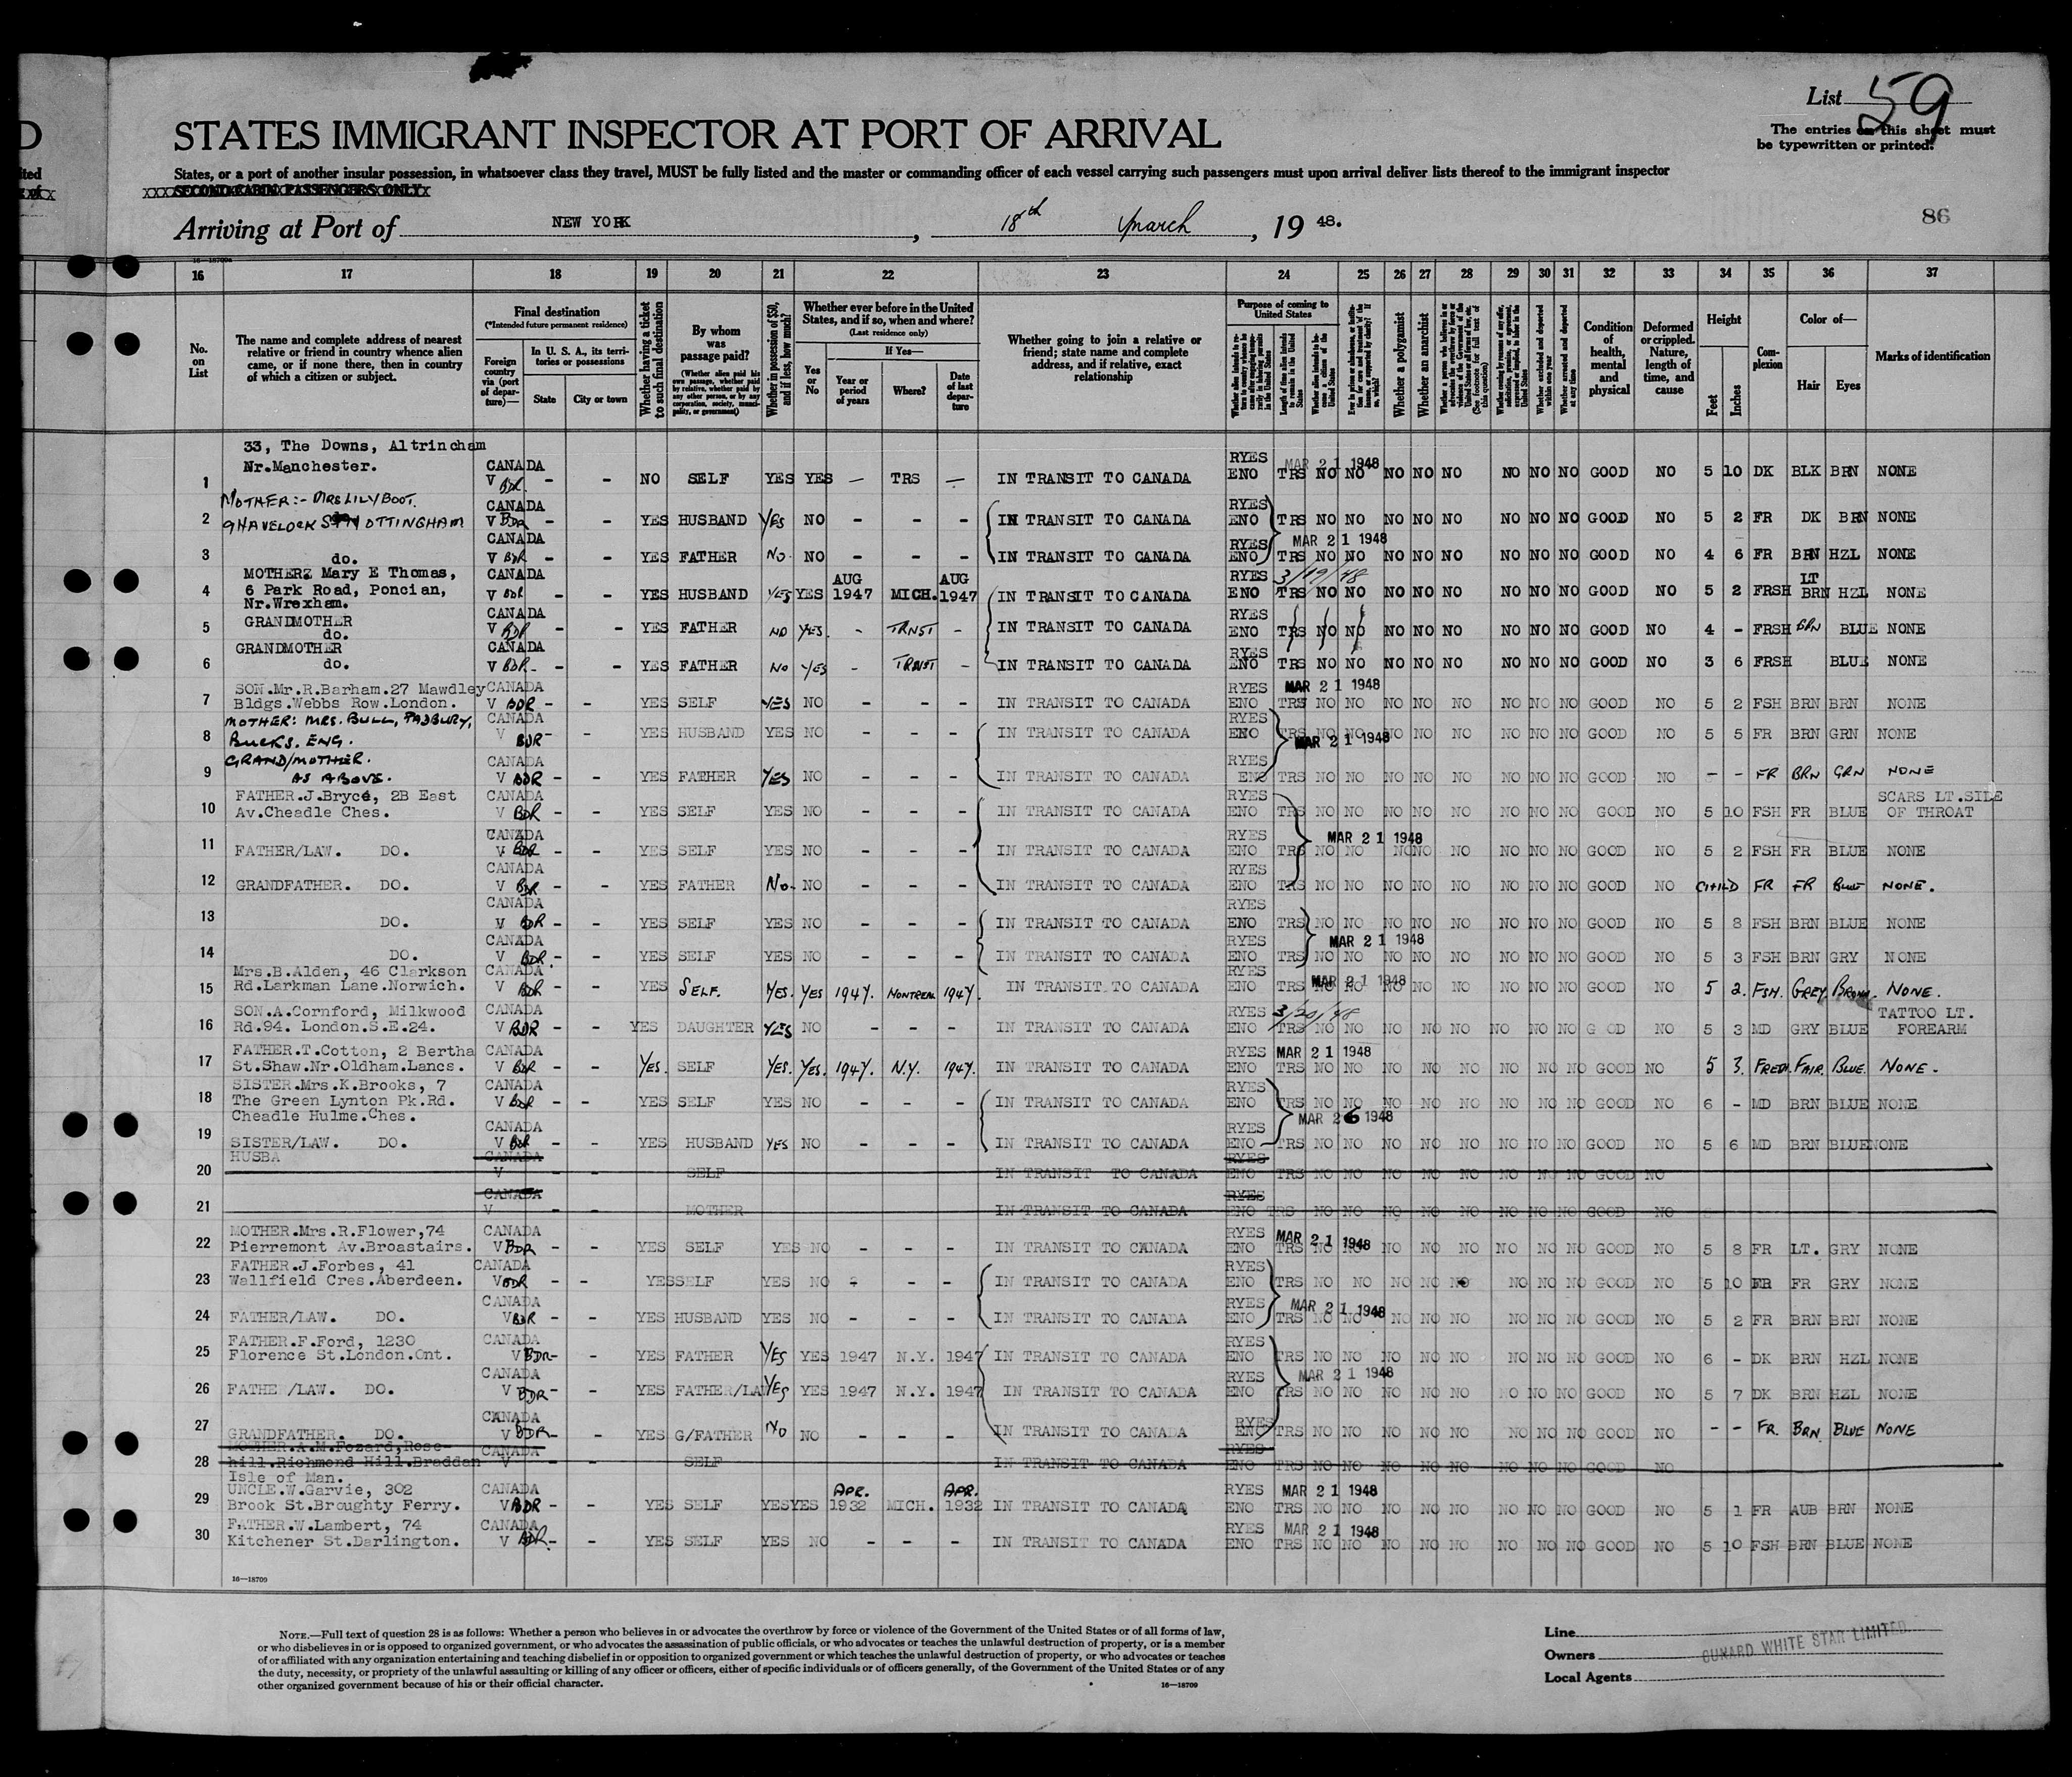 D
ited
List 59
The entries on this sheet must
be typewritten or printed.
STATES IMMIGRANT INSPECTOR AT PORT OF ARRIVAL
States, or a port of another insular possession, in whatsoever class they travel, MUST be fully listed and the master or commanding officer of each vessel carrying such passengers must upon arrival deliver lists thereof to the immigrant inspector
SECOND-CABIN PASSENGERS ONLY
Arriving at Port of NEW YORK, 18th March, 19 48.
86
16 17 18 19 20 21 22 23 24 25 26 27 28 29 30 31 32 33 34 35 36 37
No. on List
The name and complete address of nearest relative or friend in country whence alien came, or if none there, then in country of which a citizen or subject.
Final destination
(*Intended future permanent residence)
Foreign country via (port of departure)—
In U. S. A., its territories or possessions
State
City or town
Whether having a ticket to such final destination
By whom was passage paid?
(Whether alien paid his own passage, whether paid by relative, whether paid by any other person, or by any corporation, society, municipality, or government)
Whether in possession of $50, and if less, how much?
Whether ever before in the United States, and if so, when and where?
(Last residence only)
If Yes—
Yes or No
Year or period of years
Where?
Date of last departure
Whether going to join a relative or friend; state name and complete address, and if relative, exact relationship
Purpose of coming to United States
Whether a polygamist
Whether an anarchist
Condition of health, mental and physical
Deformed or crippled. Nature, length of time, and cause
Height
Feet
Inches
Complexion
Color of—
Hair
Eyes
Marks of identification
33, The Downs, Altrincham
Nr.Manchester. CANADA RYES MAR 21 1948
1 V BDR - - NO SELF YES YES — TRS — IN TRANSIT TO CANADA ENO TRS NO NO NO NO NO NO NO NO GOOD NO 5 10 DK BLK BRN NONE
MOTHER:- MRS LILY BOOT. CANADA RYES
2 9 HAVELOCK ST NOTTINGHAM V BDR - - YES HUSBAND YES NO - - - IN TRANSIT TO CANADA ENO TRS NO NO NO NO NO NO NO NO GOOD NO 5 2 FR DK BRN NONE
CANADA RYES MAR 21 1948
3 do. V BDR - - YES FATHER NO NO - - - IN TRANSIT TO CANADA ENO TRS NO NO NO NO NO NO NO NO GOOD NO 4 6 FR BRN HZL NONE
MOTHER: Mary E Thomas, CANADA AUG AUG RYES 3/19/48 LT
4 6 Park Road, Poncian, V BDR - - YES HUSBAND YES YES 1947 MICH. 1947 IN TRANSIT TO CANADA ENO TRS NO NO NO NO NO NO NO NO GOOD NO 5 2 FRSH BRN HZL NONE
Nr.Wrexham.
GRANDMOTHER CANADA RYES
5 do. V BDR - - YES FATHER NO YES. - TRNST - IN TRANSIT TO CANADA ENO TRS NO NO NO NO NO NO NO NO GOOD NO 4 - FRSH BRN BLUE NONE
GRANDMOTHER CANADA RYES
6 do. V BDR - - YES FATHER NO YES - TRNST - IN TRANSIT TO CANADA ENO TRS NO NO NO NO NO NO NO NO GOOD NO 3 6 FRSH BLUE NONE
SON.Mr.R.Barham.27 Mawdley CANADA RYES MAR 21 1948
7 Bldgs.Webbs Row.London. V BDR - - YES SELF YES NO - - - IN TRANSIT TO CANADA ENO TRS NO NO NO NO NO NO NO NO GOOD NO 5 2 FSH BRN BRN NONE
MOTHER: MRS. BULL, PADBURY, CANADA RYES
8 BUCKS. ENG. V BDR - - YES HUSBAND YES NO - - - IN TRANSIT TO CANADA ENO TRS MAR 21 1948 NO NO NO NO NO NO NO NO GOOD NO 5 5 FR BRN GRN NONE
GRAND/MOTHER. CANADA RYES
9 AS ABOVE. V BDR - - YES FATHER YES NO - - - IN TRANSIT TO CANADA ENO TRS NO NO NO NO NO NO NO NO GOOD NO - - FR BRN GRN NONE
FATHER.J.Bryce, 2B East CANADA RYES SCARS LT.SIDE
10 Av.Cheadle Ches. V BDR - - YES SELF YES NO - - - IN TRANSIT TO CANADA ENO TRS NO NO NO NO NO NO NO NO GOOD NO 5 10 FSH FR BLUE OF THROAT
CANADA RYES MAR 21 1948
11 FATHER/LAW. DO. V BDR - - YES SELF YES NO - - - IN TRANSIT TO CANADA ENO TRS NO NO NO NO NO NO NO NO GOOD NO 5 2 FSH FR BLUE NONE
CANADA RYES
12 GRANDFATHER. DO. V BDR - - YES FATHER No. NO - - - IN TRANSIT TO CANADA ENO TRS NO NO NO NO NO NO NO NO GOOD NO CHILD FR FR BLUE NONE.
CANADA RYES
13 DO. V BDR - - YES SELF YES NO - - - IN TRANSIT TO CANADA ENO TRS NO NO NO NO NO NO NO NO GOOD NO 5 8 FSH BRN BLUE NONE
CANADA RYES MAR 21 1948
14 DO. V BDR - - YES SELF YES NO - - - IN TRANSIT TO CANADA ENO TRS NO NO NO NO NO NO NO NO GOOD NO 5 3 FSH BRN GRY NONE
Mrs.B.Alden, 46 Clarkson CANADA RYES MAR 21 1948
15 Rd.Larkman Lane.Norwich. V BDR - - YES SELF. YES. YES 1947. MONTREAL 1947. IN TRANSIT TO CANADA ENO TRS NO NO NO NO NO NO NO NO GOOD NO 5 2. FSH. GREY. BROWN. NONE.
SON.A.Cornford, Milkwood CANADA RYES 3/20/48 TATTOO LT.
16 Rd.94. London.S.E.24. V BDR - - YES DAUGHTER YES NO - - - IN TRANSIT TO CANADA ENO TRS NO NO NO NO NO NO NO NO G OD NO 5 3 MD GRY BLUE FOREARM
FATHER.T.Cotton, 2 Bertha CANADA RYES MAR 21 1948
17 St.Shaw.Nr.Oldham.Lancs. V BDR - - YES. SELF YES. YES. 1947. N.Y. 1947. IN TRANSIT TO CANADA ENO TRS NO NO NO NO NO NO NO NO GOOD NO 5 3. FRESH. FAIR. BLUE. NONE.
SISTER.Mrs.K.Brooks, 7 CANADA RYES
18 The Green Lynton Pk.Rd. V BDR - - YES SELF YES NO - - - IN TRANSIT TO CANADA ENO TRS NO NO NO NO NO NO NO NO GOOD NO 6 - MD BRN BLUE NONE
Cheadle Hulme.Ches. CANADA RYES MAR 26 1948
19 SISTER/LAW. DO. V BDR - - YES HUSBAND YES NO - - - IN TRANSIT TO CANADA ENO TRS NO NO NO NO NO NO NO NO GOOD NO 5 6 MD BRN BLUE NONE
HUSBA CANADA RYES
20 V - - SELF IN TRANSIT TO CANADA ENO TRS NO NO NO NO NO NO NO NO GOOD NO
CANADA RYES
21 V - - MOTHER IN TRANSIT TO CANADA ENO TRS NO NO NO NO NO NO NO NO GOOD NO
MOTHER.Mrs.R.Flower,74 CANADA RYES MAR 21 1948
22 Pierremont Av.Broastairs. V BDR - - YES SELF YES NO - - - IN TRANSIT TO CANADA ENO TRS NO NO NO NO NO NO NO NO GOOD NO 5 8 FR LT. GRY NONE
FATHER.J.Forbes, 41 CANADA RYES
23 Wallfield Cres.Aberdeen. V BDR - - YES SELF YES NO - - - IN TRANSIT TO CANADA ENO TRS NO NO NO NO NO NO NO NO GOOD NO 5 10 FR FR GRY NONE
CANADA RYES MAR 21 1948
24 FATHER/LAW. DO. V BDR - - YES HUSBAND YES NO - - - IN TRANSIT TO CANADA ENO TRS NO NO NO NO NO NO NO NO GOOD NO 5 2 FR BRN BRN NONE
FATHER.F.Ford, 1230 CANADA RYES
25 Florence St.London.Ont. V BDR - - YES FATHER YES YES 1947 N.Y. 1947 IN TRANSIT TO CANADA ENO TRS NO NO NO NO NO NO NO NO GOOD NO 6 - DK BRN HZL NONE
CANADA RYES MAR 21 1948
26 FATHE /LAW. DO. V BDR - - YES FATHER/LAW YES YES 1947 N.Y. 1947 IN TRANSIT TO CANADA ENO TRS NO NO NO NO NO NO NO NO GOOD NO 5 7 DK BRN HZL NONE
CANADA RYES
27 GRANDFATHER. DO. V BDR - - YES G/FATHER NO NO - - - IN TRANSIT TO CANADA ENO TRS NO NO NO NO NO NO NO NO GOOD NO - - FR. BRN. BLUE NONE
MOTHER.A.M.Fozard,Rose- CANADA RYES
28 hill.Richmond Hill.Braddan V SELF IN TRANSIT TO CANADA ENO TRS NO NO NO NO NO NO NO NO GOOD NO
Isle of Man.
UNCLE.W.Garvie, 302 CANADA APR. APR. RYES MAR 21 1948
29 Brook St.Broughty Ferry. V BDR - - YES SELF YES YES 1932 MICH. 1932 IN TRANSIT TO CANADA ENO TRS NO NO NO NO NO NO NO NO GOOD NO 5 1 FR AUB BRN NONE
FATHER.W.Lambert, 74 CANADA RYES MAR 21 1948
30 Kitchener St.Darlington. V BDR. - - YES SELF YES NO - - - IN TRANSIT TO CANADA ENO TRS NO NO NO NO NO NO NO NO GOOD NO 5 10 FSH BRN BLUE NONE
16—18709
NOTE.—Full text of question 28 is as follows: Whether a person who believes in or advocates the overthrow by force or violence of the Government of the United States or of all forms of law,
or who disbelieves in or is opposed to organized government, or who advocates the assassination of public officials, or who advocates or teaches the unlawful destruction of property, or is a member
of or affiliated with any organization entertaining and teaching disbelief in or opposition to organized government or which teaches the unlawful destruction of property, or who advocates or teaches
the duty, necessity, or propriety of the unlawful assaulting or killing of any officer or officers, either of specific individuals or of officers generally, of the Government of the United States or of any
other organized government because of his or their official character.
16—18709
Line
Owners CUNARD WHITE STAR LIMITED
Local Agents